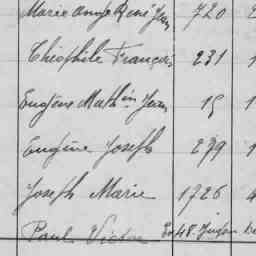 Marie Ange René Jean 720
Théophile François 231 1
Eugène Mathin Jean 15 1
Eugène Joseph 239 1
Joseph Marie 1726 4
Paul Victor 48